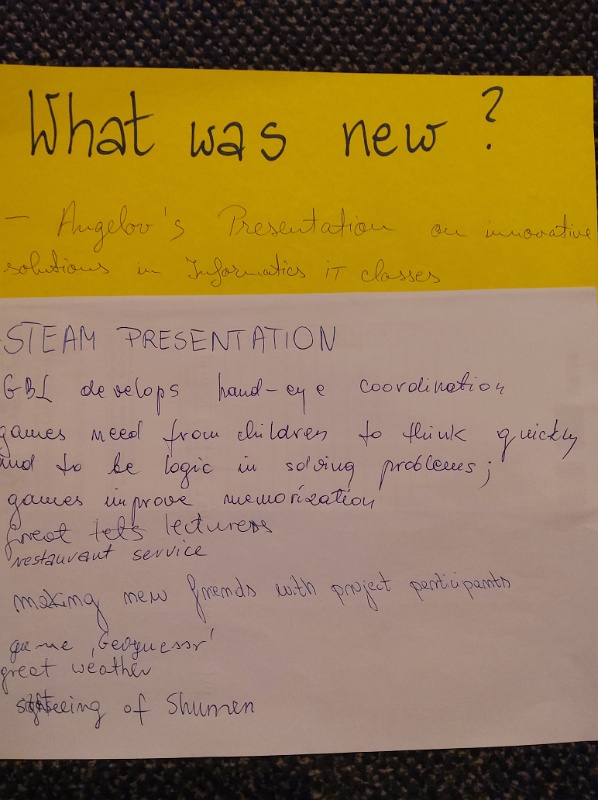 What was new ?
- Angelov's Presentation on innovative
solutions in Informatics IT classes
STEAM PRESENTATION
GBL develops hand-eye coordination
games need from children to think quickly
and to be logic in solving problems;
games improve memorization
Great lecturers
restaurant service
making new friends with project participants
game 'Geoguessr'
great weather
of Shumen